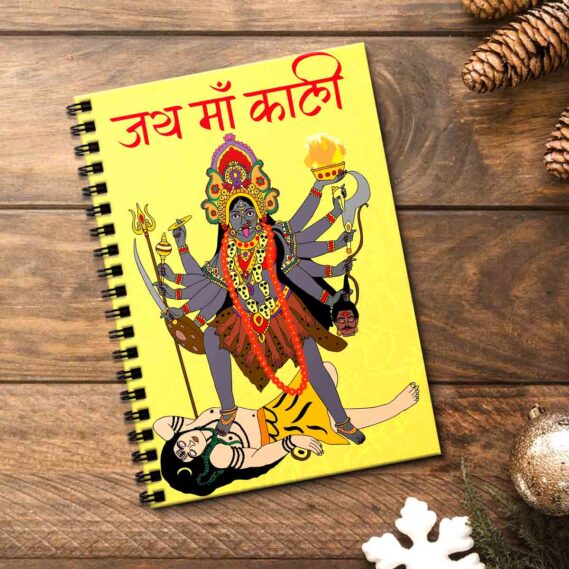 जय माँ काली